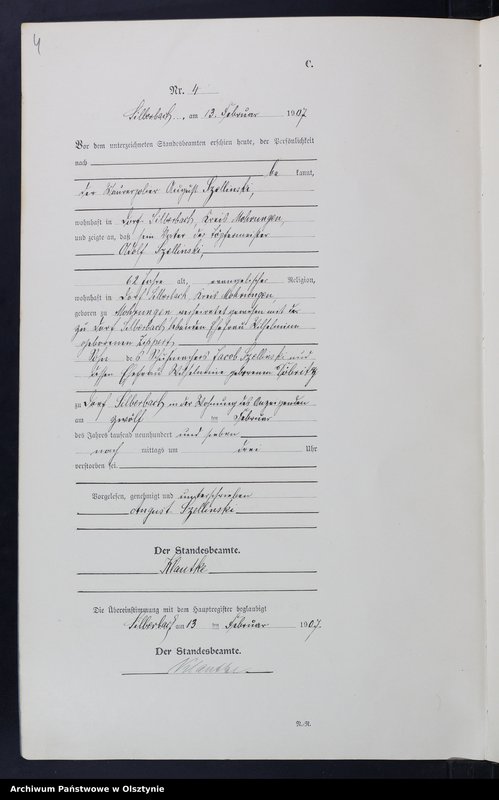 4
C.
Nr. 4
Silberbach, am 13. Februar 1907
Vor dem unterzeichneten Standesbeamten erschien heute, der Persönlichkeit
nach
be kannt,
der Maurerpolier August Szellinski,
wohnhaft in Dorf Silberbach, Kreis Mohrungen,
und zeigte an, daß sein Vater der Töpfermeister
Adolf Szellinski,
62 Jahre alt, evangelischer Religion,
wohnhaft in Dorf Silberbach Kreis Mohrungen,
geboren zu Mohrungen verheiratet gewesen mit der
zu Dorf Silberbach lebenden Ehefrau Wilhelmine
geborenen
Sohn des Schuhmachers Jacob Szellinski und
dessen Ehefrau Wilhelmine geborenen
zu Dorf Silberbach in der Wohnung des Anzeigenden
am zwölf ten Februar
des Jahres tausend neunhundert und sieben
nach mittags um drei Uhr
verstorben sei.
Vorgelesen, genehmigt und unterschrieben
August Szellinski
Der Standesbeamte.
Klautke
Die Übereinstimmung mit dem Hauptregister beglaubigt
Silberbach am 13 ten Februar 1907.
Der Standesbeamte.
Klautke
N.-R.
Archiwum Państwowe w Olsztynie